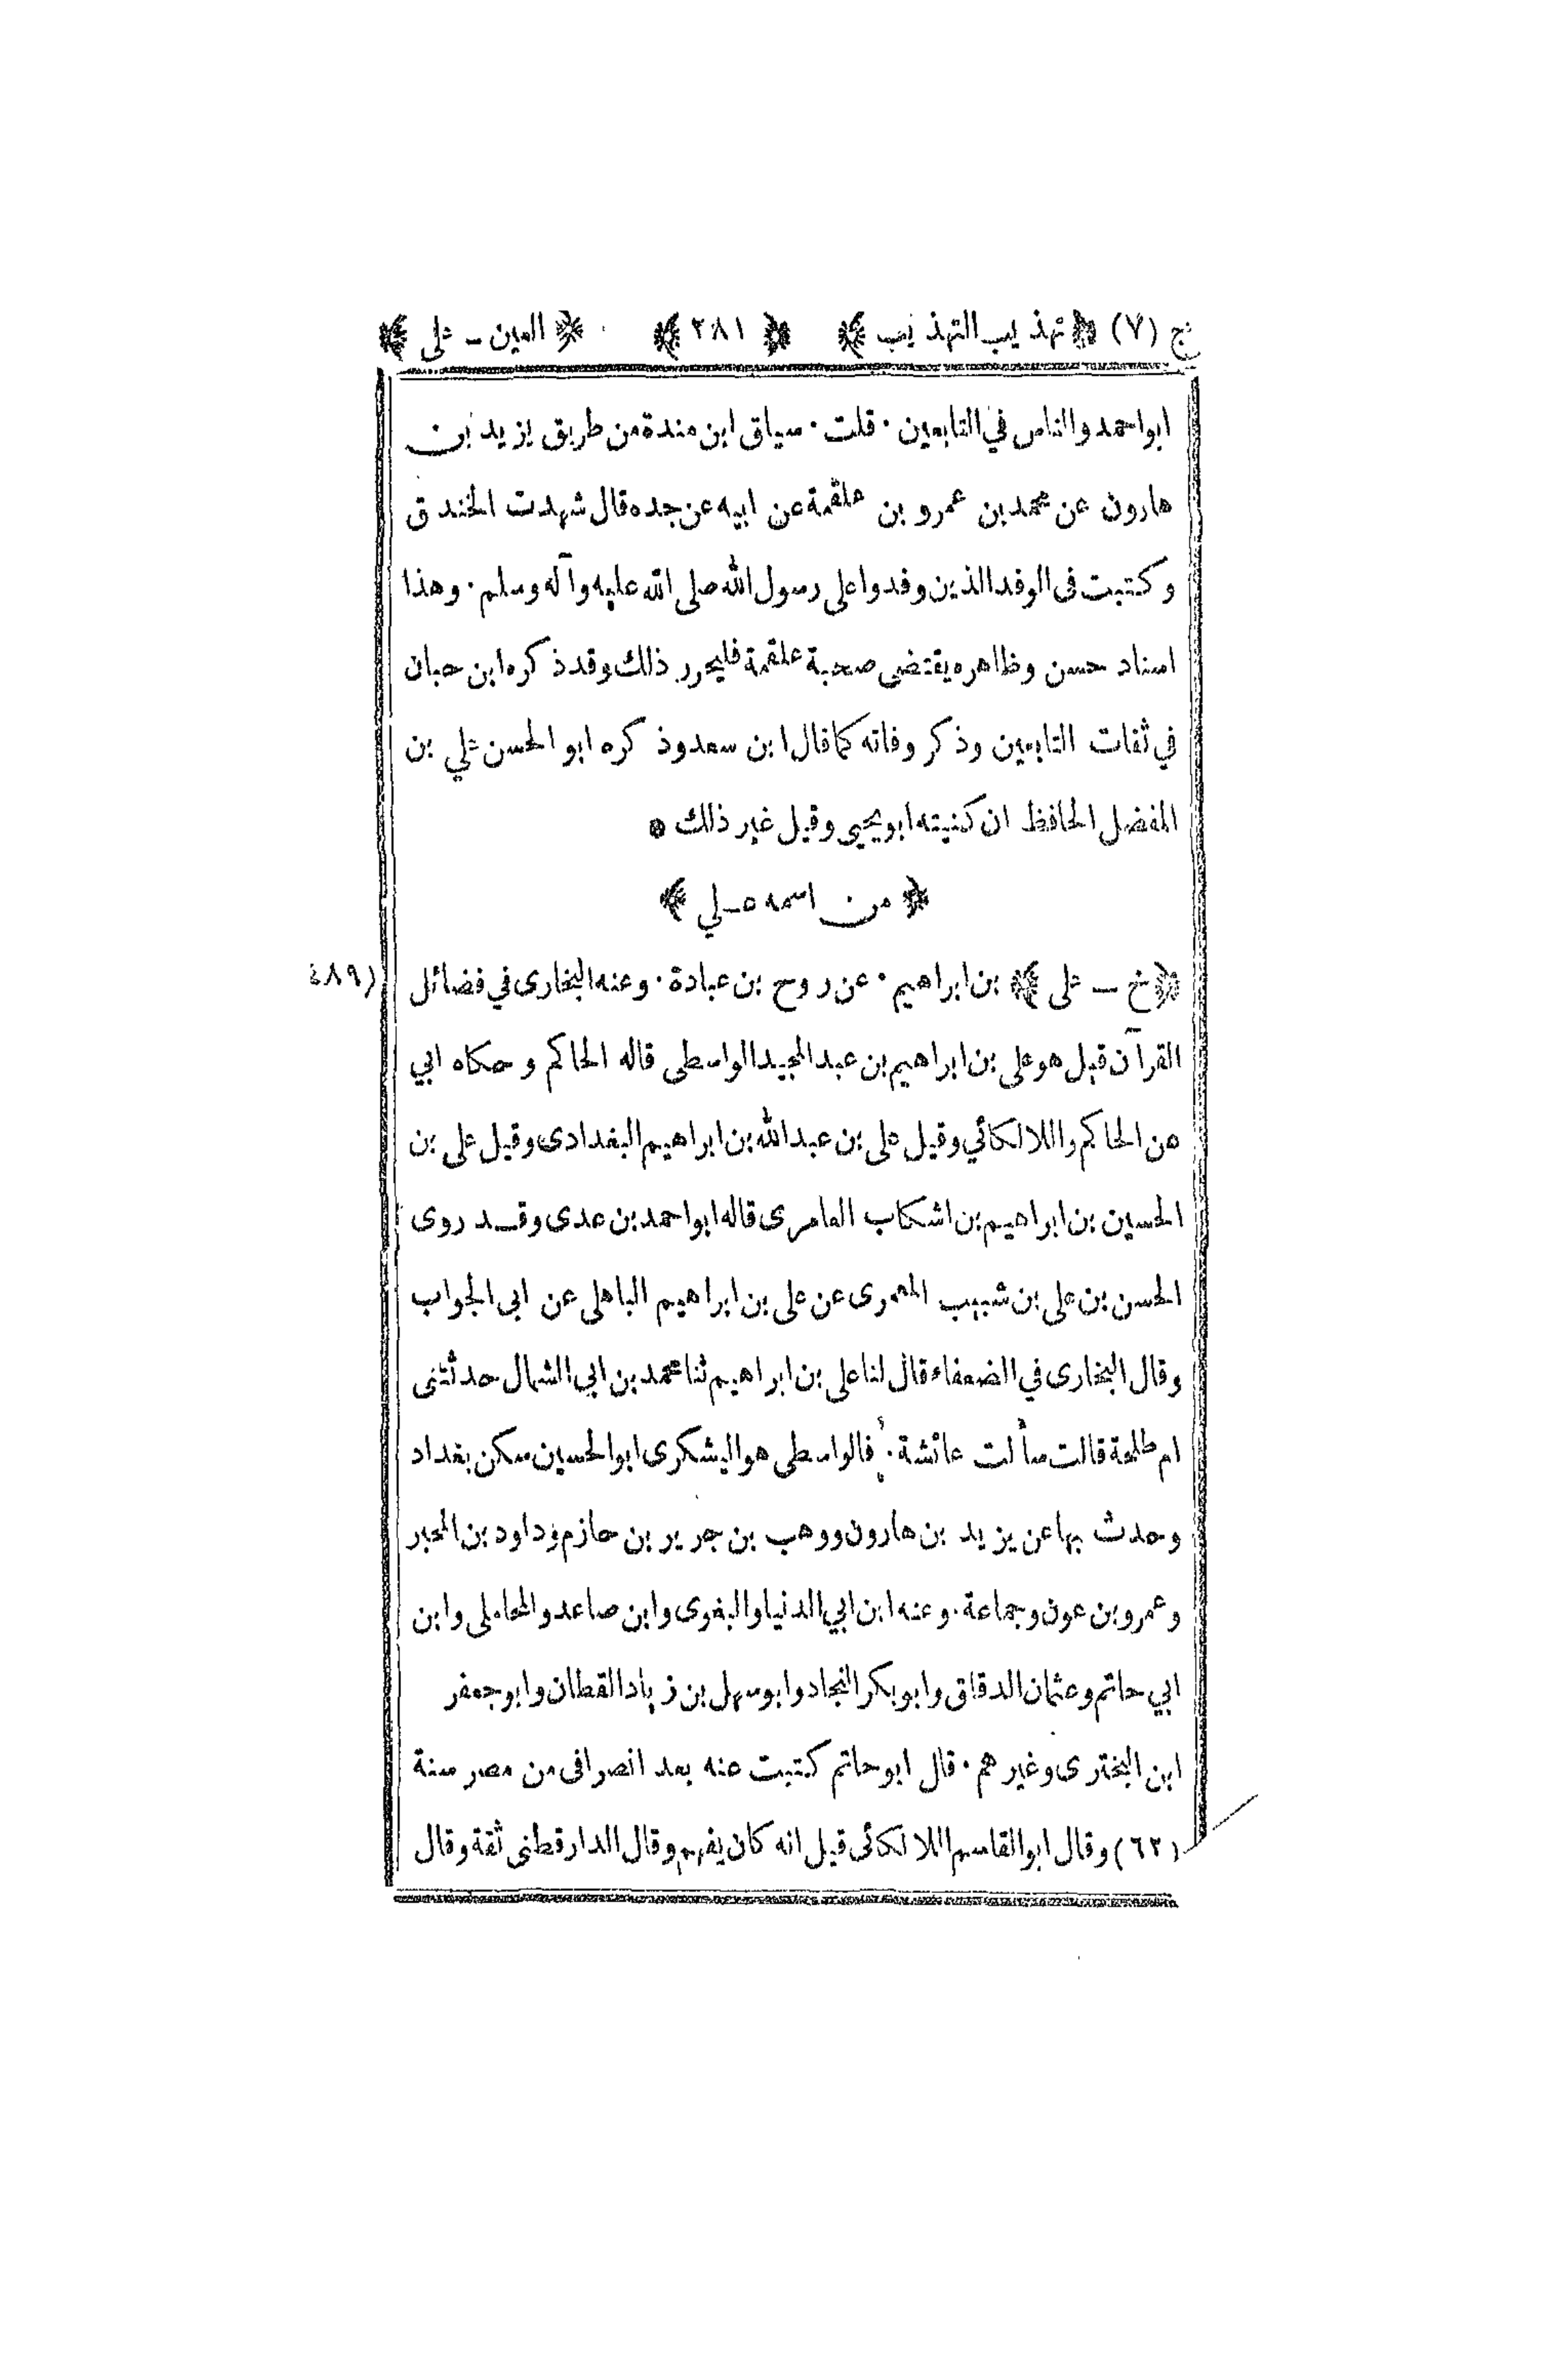 ج (٧) ﴿ تهذيب التهذيب ﴾ ﴿ ٢٨١ ﴾ ﴿ العين ـ علي ﴾
ابو احمد والناس في التابعين · قلت · سياق ابن مندة من طريق يزيد بن
هارون عن محمد بن عمرو بن علقمة عن ابيه عن جده قال شهدت الخندق
وكتبت فى الوفد الذين وفدوا على رسول الله صلى الله عليه وآله وسلم · وهذا
اسناد حسن وظاهره يقتضى صحبة علقمة فليحرر ذلك وقد ذكره ابن حبان
في ثقات التابعين وذكر وفاته كما قال ابن سعد وذكره ابو الحسن علي بن
المفضل الحافظ ان كنيته ابو يحيى وقيل غير ذلك *
﴿ من اسمه عـلي ﴾
﴿ خ ـ على ﴾ بن ابراهيم · عن روح بن عبادة · وعنه البخارى في فضائل (٤٨٩
القرآن قيل هو على بن ابراهيم بن عبد المجيد الواسطى قاله الحاكم وحكاه ابي
عن الحاكم واللالكائي وقيل على بن عبد الله بن ابراهيم البغدادى وقيل على بن
الحسين بن ابراهيم بن اشكاب العامرى قاله ابو احمد بن عدى وقـد روى
الحسن بن على بن شبيب المعمرى عن على بن ابراهيم الباهلى عن ابى الجواب
وقال البخارى في الضعفاء قال لنا على بن ابراهيم ثنا محمد بن ابي الشمال حدثتنى
ام طلحة قالت سألت عائشة · فالواسطى هو اليشكرى ابو الحسين سكن بغداد
وحدث بها عن يزيد بن هارون ووهب بن جرير بن حازم وداود بن المحبر
وعمرو بن عون وجماعة · وعنه ابن ابي الدنيا والبغوى وابن صاعد والمحاملى وابن
ابي حاتم وعثمان الدقاق وابو بكر النجاد وابو سهل بن زياد القطان وابو جعفر
ابن البخترى وغيرهم · قال ابو حاتم كتبت عنه بعد انصرافى من مصر سنة
(٦٢) وقال ابو القاسم اللالكائى قيل انه كان يفهم وقال الدارقطنى ثقة وقال